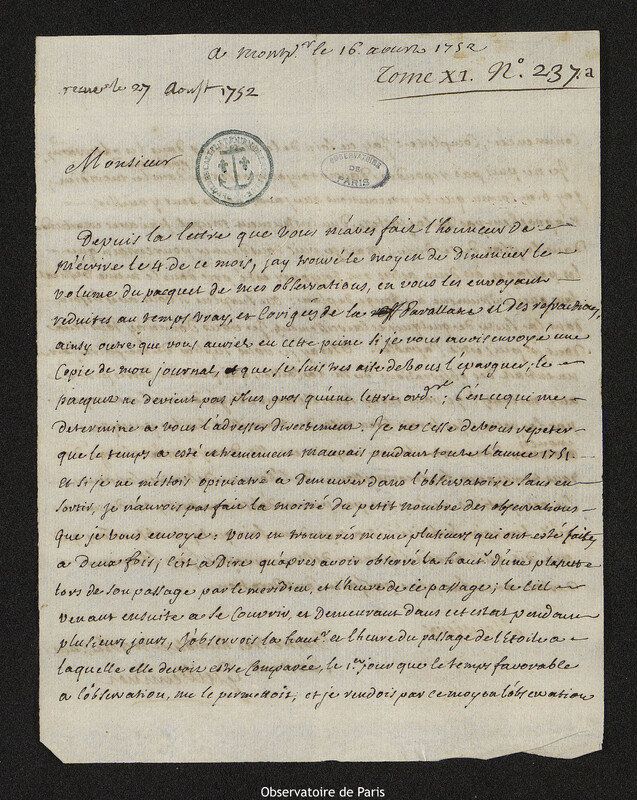 a Montp.er le 16. aoust 1752
Tome XI. N.o 237.a
receue le 27 Aoust 1752
Monsieur
OBSERVATOIRE
DE
PARIS
Depuis la lettre que vous m'aves fait l'honneur de
m'écrire le 4 de ce mois, jay trouvé le moyen de diminüer le
volume du pacquet de mes observations, en vous les envoyant
reduites au temps vray, et Corigées de la Parallaxe et des refractions,
ainsy outre que vous auriés eu cette peine si je vous avois envoyé une
Copie de mon journal, et que je suis tres aise de vous l'épargner, le
pacquet ne devient pas plus gros qu'une lettre ord.re; C'en ce qui me
determine a vous l'adresser directement. Je ne cesse de vous repeter
que le temps a esté extremement mauvais pendant toute l'année 1751.
Et si je ne m'estois opiniatré a demeurer dans l'observatoire sans en
sortir, je n'aurois pas fait la moitié du petit nombre des observations
que je vous envoye: vous en trouverés meme plusieurs qui ont esté faites
a Deux fois; C'est a Dire qu'apres avoir observé la haut.r d'une planette
lors de son passage par le meridien, et l'heure de ce passage; le Ciel
venant ensuite a se Couvrir, et Demeurant dans cet estat pendant
plusieurs jours, J'observois la haut.r et l'heure du passage de l'étoile a
laquelle elle devoit estre Comparée, le 1.er jour que le temps favorable
a l'observation, me le permettoit, et je rendois par ce moyen l'observation
Observatoire de Paris